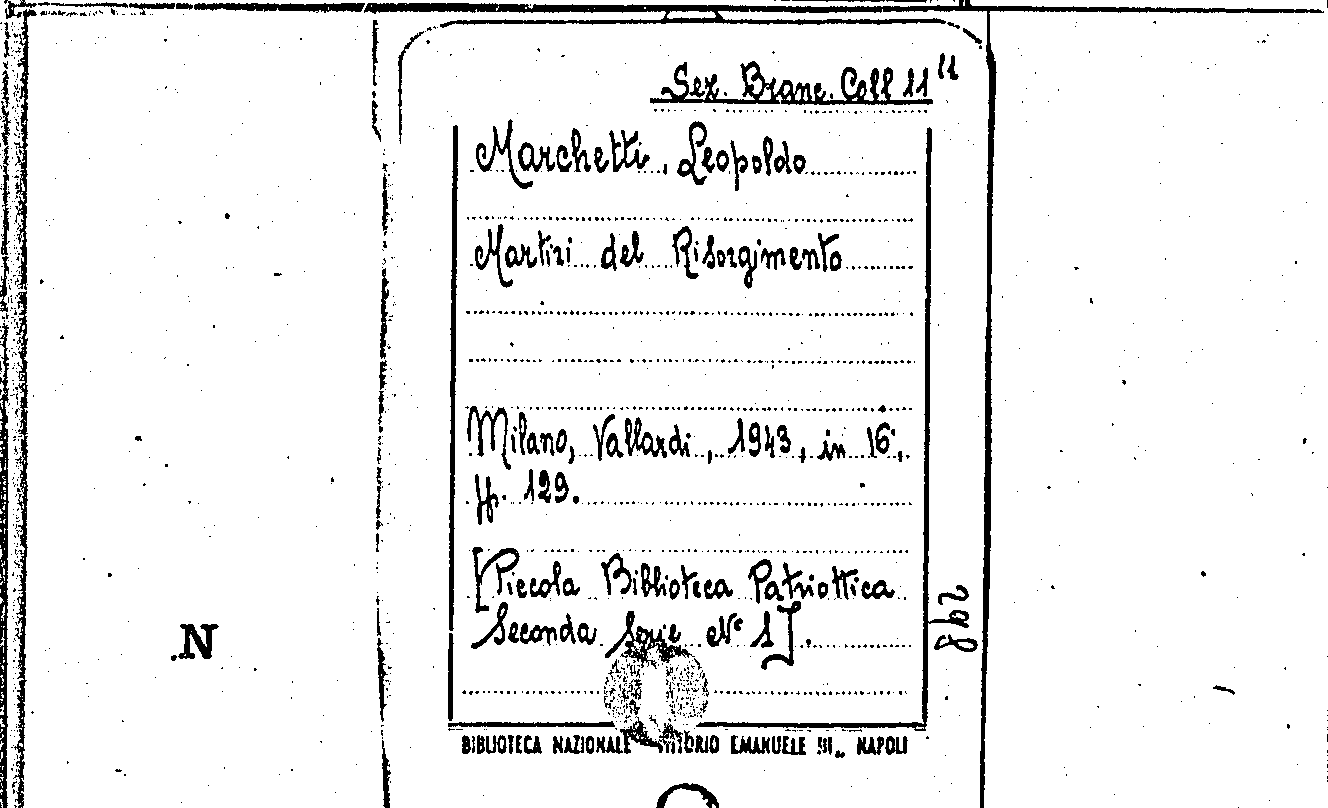 Sez. Branc. Coll 11
Marchetti, Leopoldo
Martiri del Risorgimento
Milano, Vallardi, 1943, in 16°,
pp. 129.
[Piccola Biblioteca Patriottica
Seconda Serie N° 1].
298
N
BIBLIOTECA NAZIONALE VITTORIO EMANUELE III„ NAPOLI